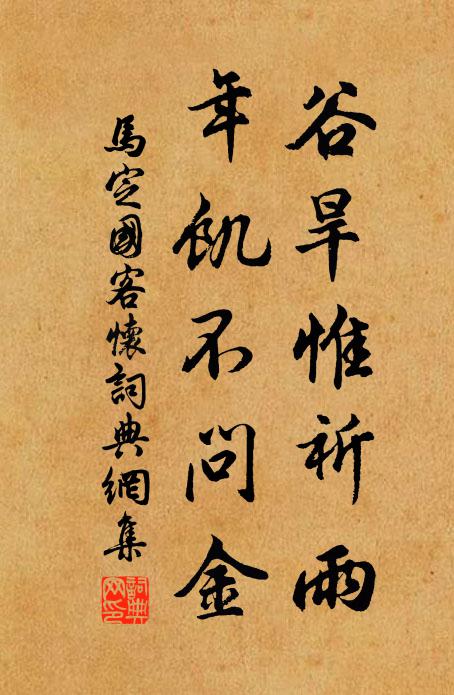 谷旱惟祈雨
年飢不問金
馬定國客懷詞典網集
詞典網印